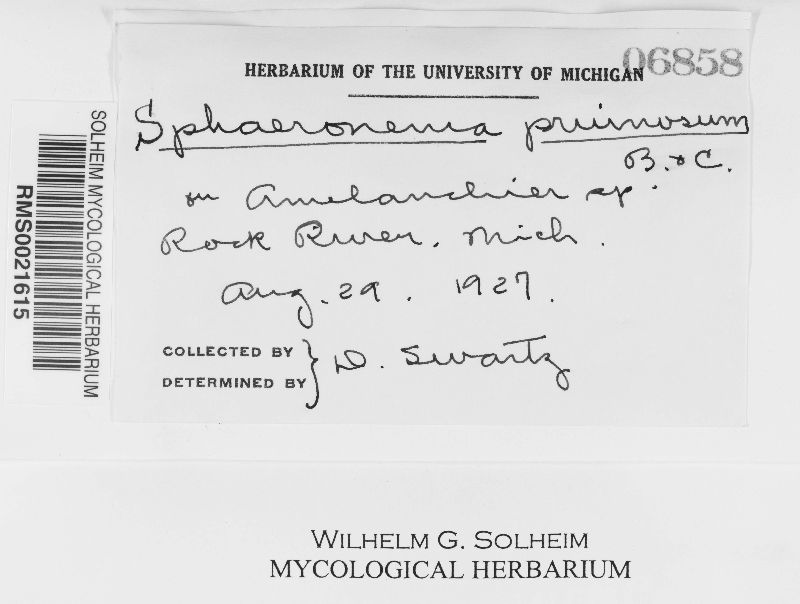 06858
HERBARIUM OF THE UNIVERSITY OF MICHIGAN
Sphaeronema pruinosum
B. & C.
on Amelanchier sp.
Rock River, Mich.
Aug. 29. 1927.
COLLECTED BY
DETERMINED BY } D. Swartz
SOLHEIM MYCOLOGICAL HERBARIUM
RMS0021615
WILHELM G. SOLHEIM
MYCOLOGICAL HERBARIUM